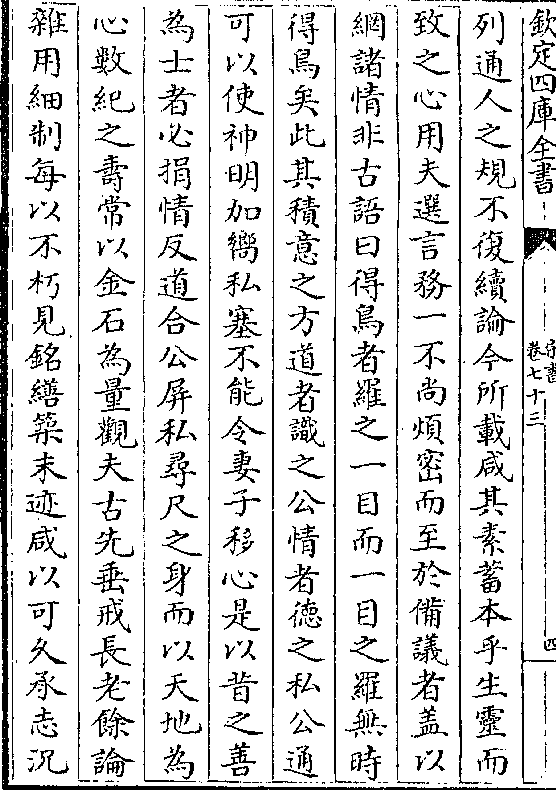 欽定四庫全書
宋書
卷七十三
四
列通人之規不復續論今所載咸其素蓄本乎生靈而
致之心用夫選言務一不尚煩密而至於備議者盖以
網諸情非古語曰得鳥者羅之一目而一目之羅無時
得鳥矣此其積意之方道者識之公情者德之私公通
可以使神明加嚮私塞不能令妻子移心是以昔之善
為士者必捐情反道合公屏私尋尺之身而以天地為
心數紀之壽常以金石為量觀夫古先垂戒長老餘論
雖用細制每以不朽見銘繕築末迹咸以可久承志況